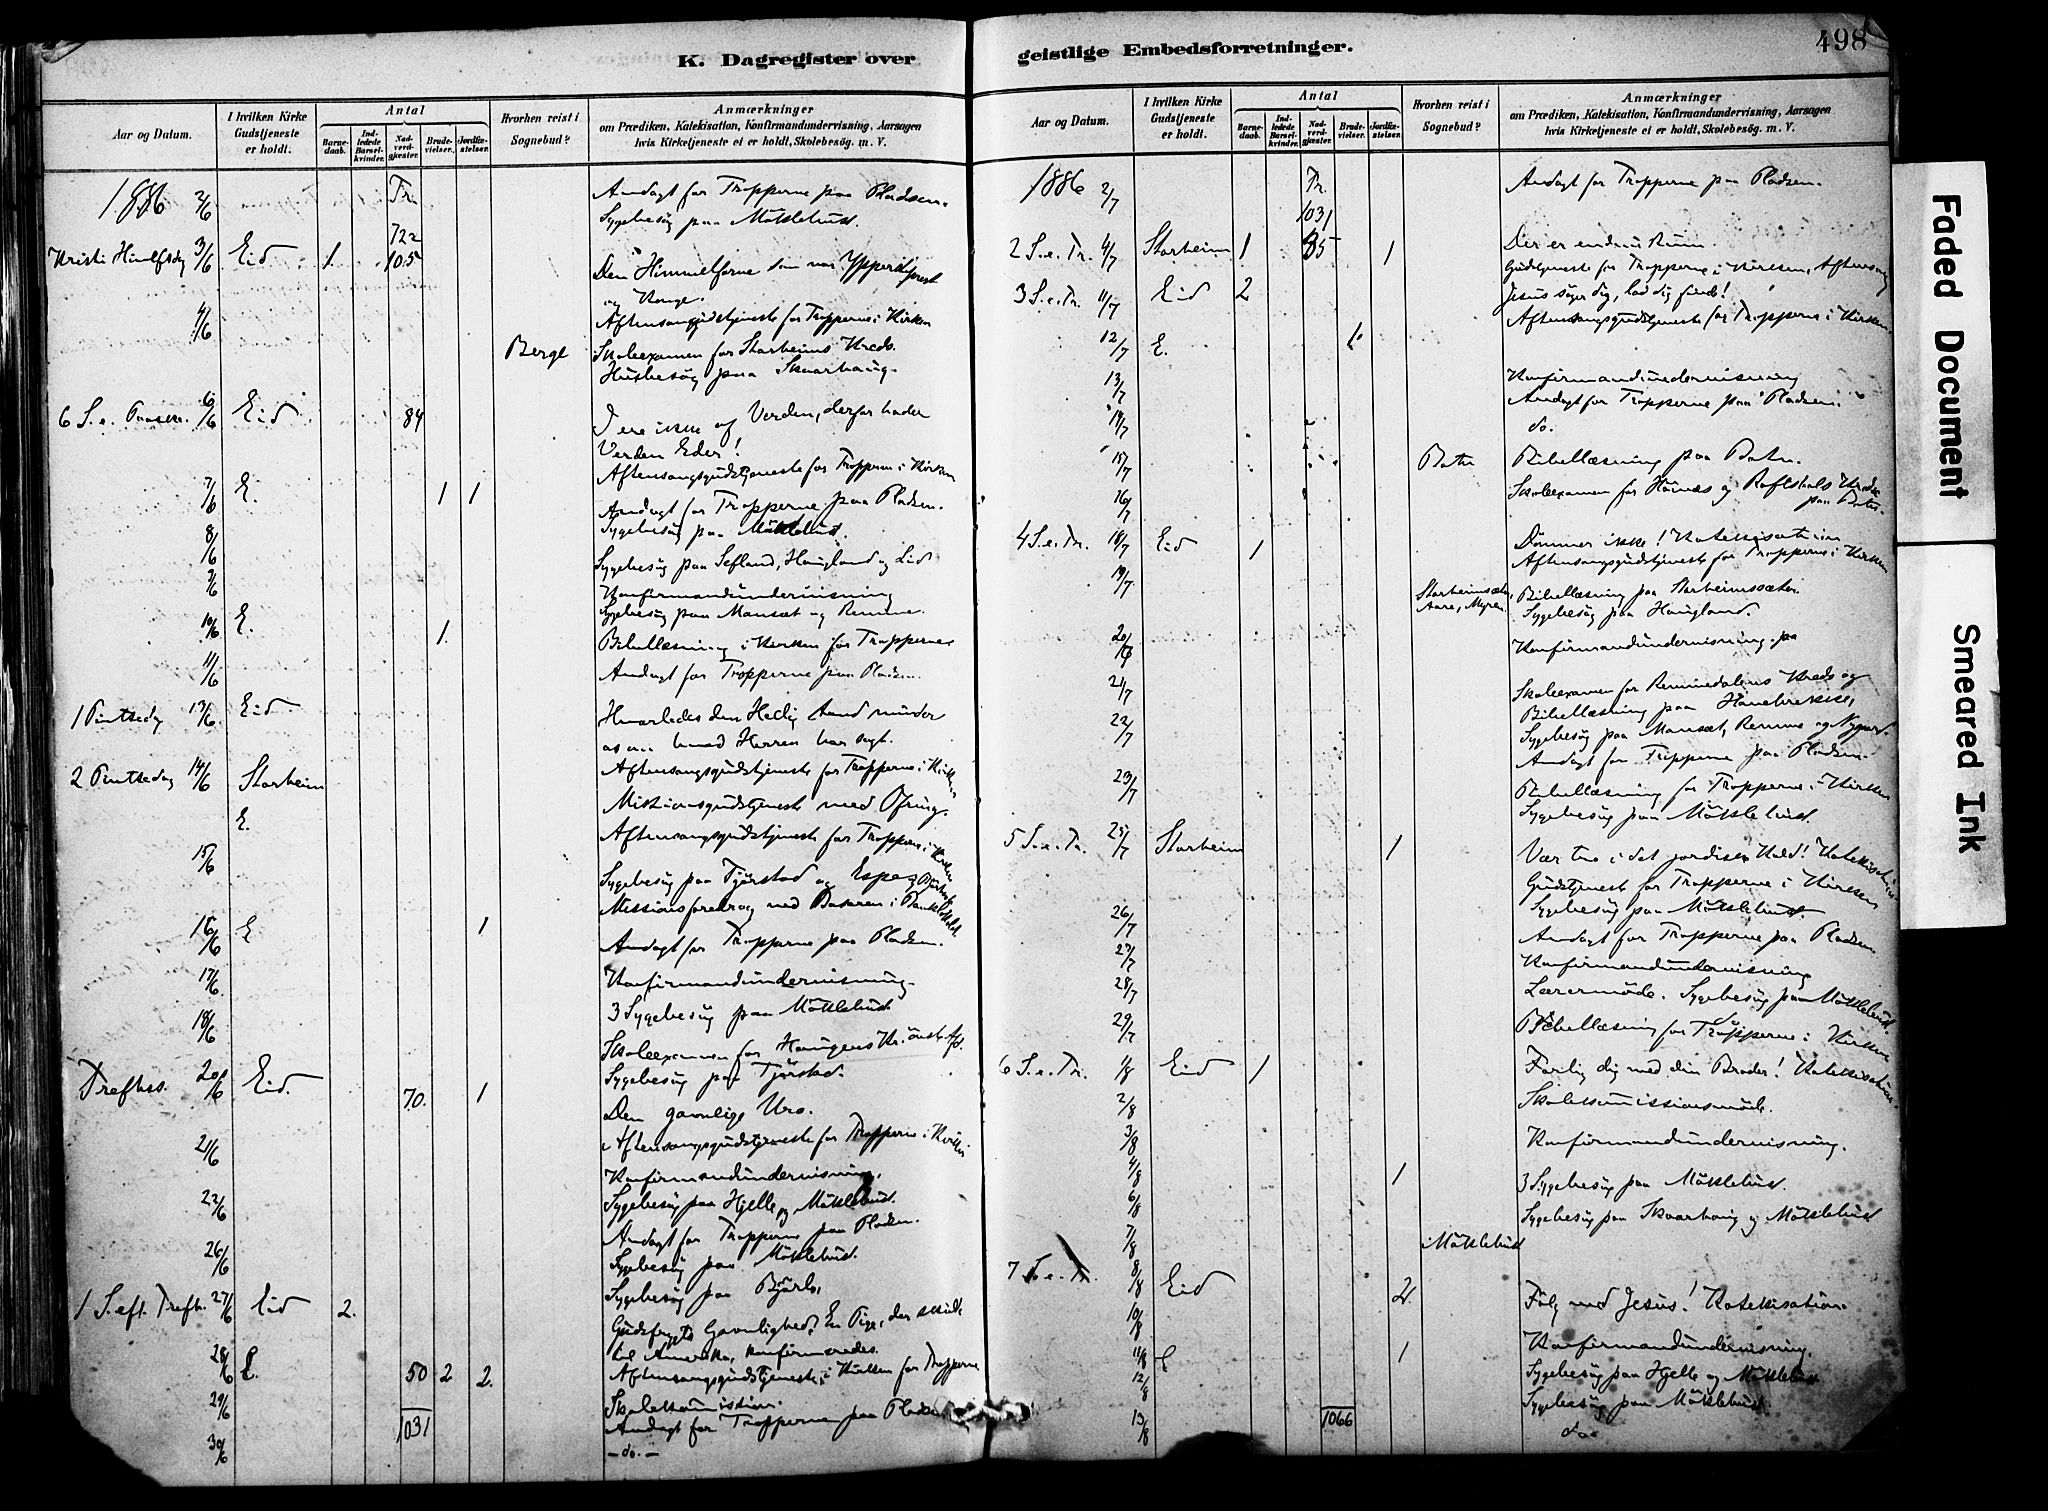 K. Dagregister over
Aar og Datum.
I hvilken Kirke Gudstjeneste er holdt.
Antal
Barnedaab.
Indledede Barselkvinder.
Nadverdgjæster.
Brudevielser.
Jordfæstelser.
Hvorhen reist i Sognebud?
Anmærkninger
om Prædiken, Katekisation, Konfirmandundervisning, Aarsagen
hvis Kirketjeneste ei er holdt, Skolebesög. m. V.
1886 2/6 Tr. Andagt for Tropperne paa Pladsen.
Sygebesög paa Möklebust.
722
Kristi Himlfsdag 3/6 Eid 1. 105
Den Himmelfarne som vor Ypperstprest
og Konge.
Aftensangsgudstjeneste for Tropperne i Kirken
4/6 Berge Skoleexamen for Starheims Kreds.
Husbesög paa Skaarhaug.
6 S. e. Paaske. 6/6 Eid 84
I ere ikke af Verden, derfor hader
Verden Eder!
Aftensangsgudstjeneste for Tropperne i Kirken
7/6 E. 1 1 Andagt for Tropperne paa Pladsen.
Sygebesög paa Möklebust.
8/6 Sygebesög paa Sefland, Haugland og Lid
9/6 Konfirmandundervisning
Sygebesög paa Mansæt og Remme.
10/6 E. 1. Bibellæsning i Kirken for Tropperne
11/6 Andagt for Tropperne paa Pladsen.
1 Pintsedag 13/6 Eid Hvorledes den Hellig Aand minder
os om hvad Herren har sagt.
Aftensangsgudstjeneste for Tropperne i Kirken
2 Pintsedag 14/6 Starheim Missionsgudstjeneste med Ofring.
E. Aftensangsgudstjeneste for Tropperne i Kirken
15/6 Sygebesög paa Tjörstad og Espe
Missionsforedrag med Basaren i
16/6 E 1 Andagt for Tropperne paa Pladsen.
17/6 Konfirmandundervisning.
3 Sygebesög paa Möklebust
18/6 Skoleexamen for Haugens Kr.
Sygebesög paa Tjörstad.
Trefhs. 20/6 Eid. 70. 1 Den gavnlige Uro.
Aftensangsgudstjeneste for Tropperne i Kirken
21/6 Konfirmandundervisning.
Sygebesög paa Hjelle og Möklebust.
22/6 Andagt for Tropperne paa Pladsen.
Sygebesög paa Möklebust.
26/6 Sygebesög paa
1 S. eft. Trefh. 27/6 Eid 2. Gudsfrygts Gavnlighed. En Pige, der skulde
til Amerika, konfirmeredes.
28/6 E. 50 2 2. Aftensangsgudstjeneste i Kirken for Tropperne
29/6 Skolekommission.
1031 Andagt for Tropperne paa Pladsen
30/6 - do. -
geistlige Embedsforretninger.
498
Aar og Datum.
I hvilken Kirke Gudstjeneste er holdt.
Antal
Barnedaab.
Indledede Barselkvinder.
Nadverdgjæster.
Brudevielser.
Jordfæstelser.
Hvorhen reist i Sognebud?
Anmærkninger
om Prædiken, Katekisation, Konfirmandundervisning, Aarsagen
hvis Kirketjeneste ei er holdt, Skolebesög. m. V.
1886 2/7 Tr. Andagt for Tropperne paa Pladsen.
1031
2 S. e. Tr. 4/7 Starheim 1 35 1 Der er endnu Rum.
Gudstjeneste for Tropperne i Kirken, Aftensang
3 S. e. Tr. 11/7 Eid 2 Jesus söger dig, lad dig finde!
Aftensangsgudstjeneste for Tropperne i Kirken.
12/7 E. 1.
13/7 Konfirmandundervisning
Andagt for Tropperne paa Pladsen.
14/7 do.
15/7 Botn Bibellæsning paa Botn.
16/7 Skoleexamen for Hornes og Kreds
paa Botn.
4 S. e. Tr. 18/7 Eid 1 Dömmer ikke! Katekisation
Aftensangsgudstjeneste for Tropperne i Kirken
19/7 Starheimsæter, Aare, Myren. Bibellæsning paa Starheimssæter.
Sygebesög paa Haugland.
20/7 Konfirmandundervisning.
21/7 Skoleexamen for Remmedalens Kreds og
Bibellæsning paa
22/7 Sygebesög paa Mansæt, Remme og Nygaard.
Andagt for Tropperne paa Pladsen.
23/7 Bibellæsning for Tropperne i Kirken
Sygebesög paa Möklebust.
5 S. e. Tr. 25/7 Starheim 1 Vær tro i det jordiske Kald! Katekisation
Gudstjeneste for Tropperne i Kirken
Sygebesög paa Möklebust.
26/7 Andagt for Tropperne paa Pladsen
27/7 Konfirmandundervisning
28/7 Læreremöde. Sygebesög paa Möklebust
29/7 Bibellæsning for Tropperne i Kirken
6 S. e. Tr. 1/8 Eid 1 Forlig dig med din Broder! Katekisation.
2/8 Skolekommissionsmöde.
3/8 Konfirmandundervisning.
4/8 1 3 Sygebesög paa Möklebust.
6/8 Sygebesög paa Skaarhaug og Möklebust
7/8 Möklebust
7 S. e. Tr. 8/8 Eid 2. Fölg med Jesus! Katekisation.
10/8 Konfirmandundervisning.
11/8 E 1 Sygebesög paa Hjelle og Möklebust
12/8 Sygebesög paa Möklebust
13/8 1066 do.
Faded Document
Smeared Ink